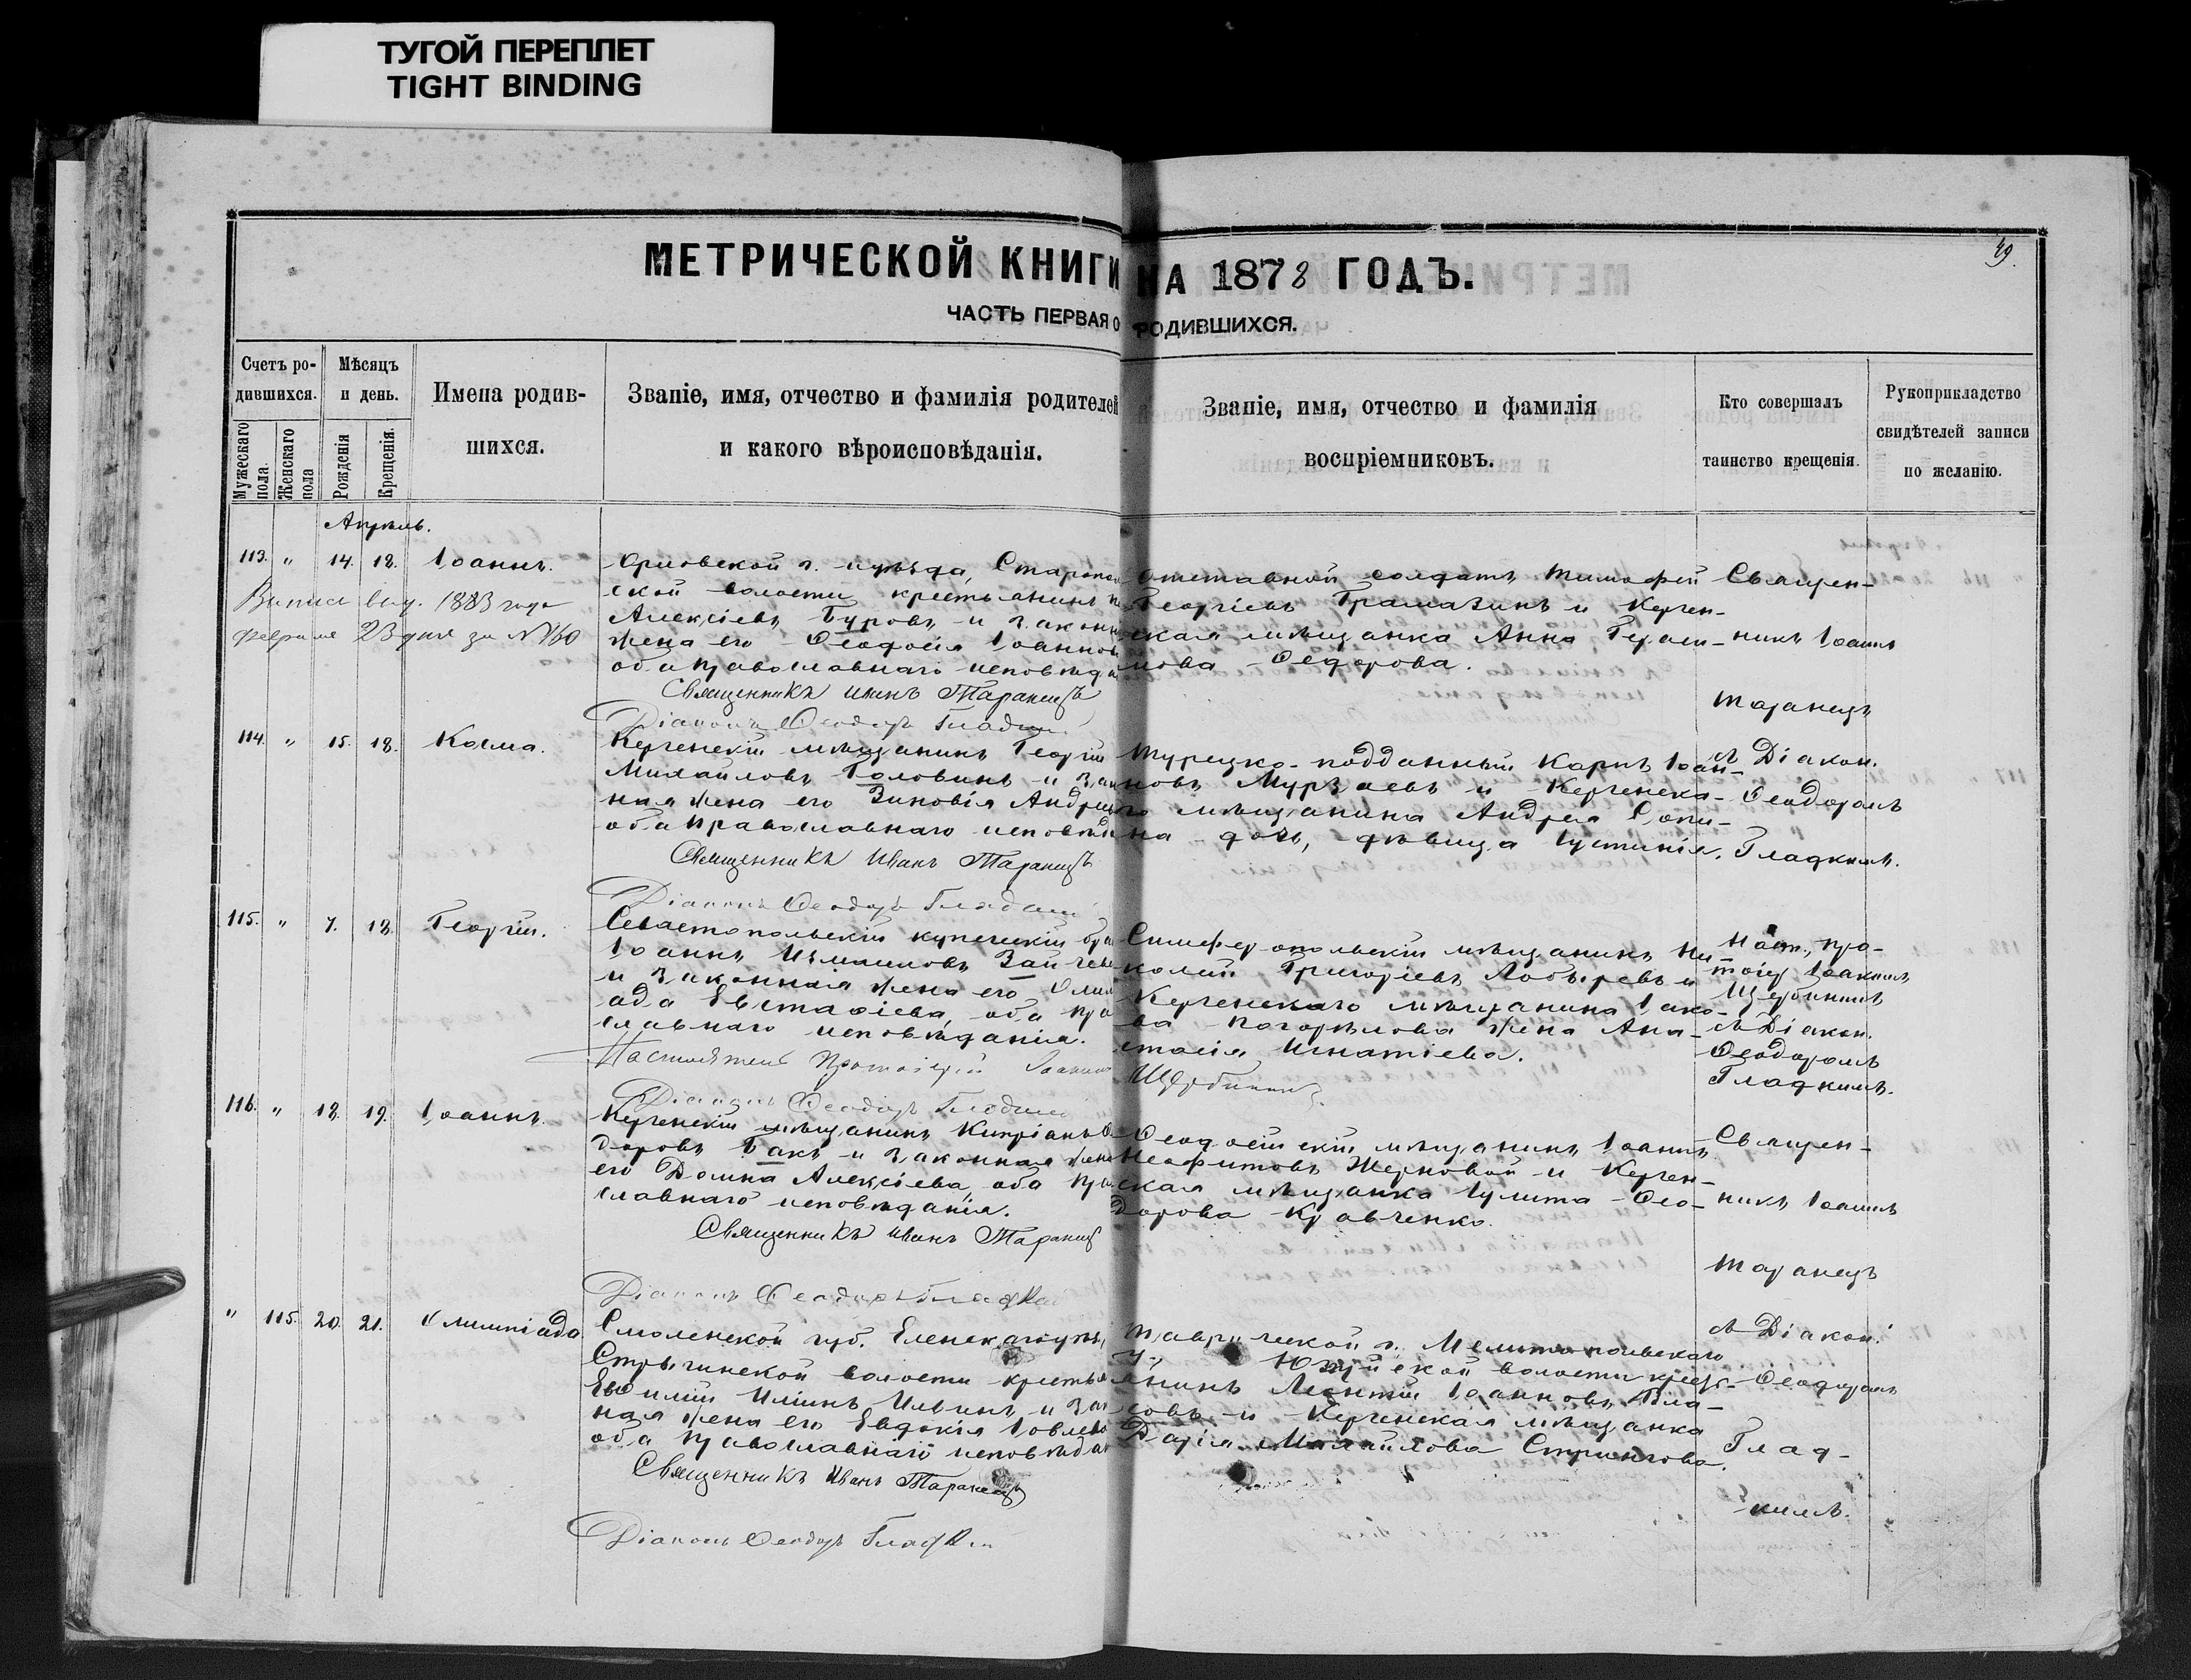 ТУГОЙ ПЕРЕПЛЕТ
TIGHT BINDING
49.
МЕТРИЧЕСКОЙ КНИГИ НА 1878 ГОДЪ.
ЧАСТЬ ПЕРВАЯ О РОДИВШИХСЯ.
Счетъ ро-
дившихся.
Мужескаго пола.
Женскаго пола
Мѣсяцъ
и день.
Рожденія
Крещенія.
Имена родив-
шихся.
Званіе, имя, отчество и фамилія родителей
и какого вѣроисповѣданія.
Званіе, имя, отчество и фамилія
воспріемниковъ.
Кто совершалъ
таинство крещенія.
Рукоприкладство
свидѣтелей записи
по желанію.
Апрѣль.
113. " 14. 18. Іоаннъ.
Выпись выд. 1883 года
февраля 23 дня за №160
Орловской г. и уѣзда,
ской волости крестьянинъ
Алексіевъ Буровъ и законн
жена его Ѳеодосія Іоаннов
оба православнаго исповѣда
Священникъ Иванъ Таранецъ
Діаконъ Ѳеодоръ Гладкій
Отставной солдатъ Тимофей
Георгіевъ Грамазинъ и Керчен-
ская мѣщанка Анна Гераси-
мова Ѳедорова.
Священ-
никъ Іоаннъ
Таранецъ
114. " 15. 18. Косма.
Керченскій мѣщанинъ Георгій
Михайловъ Головинъ и зак
ная жена его Зиновія Андрее
оба православнаго исповѣда
Священникъ Иванъ Таранецъ
Діаконъ Ѳеодоръ Гладкій
Турецко-подданный Карпъ Іоан-
новъ Мурзаевъ и Керченска-
го мѣщанина Андрея
на дочь, дѣвица Іустинія.
съ Діакон.
Ѳеодоромъ
Гладкимъ.
115. " 7. 18. Георгій.
Севастопольскій купеческій бра
Іоаннъ Зайче
и законная жена его Олим
ада Евстаѳіева, оба пра
славнаго исповѣданія.
Настоятель Протоіерей Іоакимъ Щербининъ
Діаконъ Ѳеодоръ Гладкій
Симферопольскій мѣщанинъ Ни-
колай Григорьевъ Лобыревъ и
Керченскаго мѣщанина Іако-
ва Погорѣлова жена Ана-
стасія Игнатіева.
Наст. про-
тоіер Іоакимъ
Щербининъ
съ Діакон.
Ѳеодоромъ
Гладкимъ.
116. " 18. 19. Іоаннъ.
Керченскій мѣщанинъ Кипріанъ Ѳ
доровъ Бакъ и законная жена
его Домна Алексіева, оба пра
славнаго исповѣданія.
Священникъ Иванъ Таранецъ
Діаконъ Ѳеодоръ Гладкій
Ѳеодосійскій мѣщанинъ Іоаннъ
Неофитовъ Жерновой и Керчен-
ская мѣщанка Іулита Ѳео-
дорова Кравченко.
Священ-
никъ Іоаннъ
Таранецъ
" 115. 20. 21. Олимпіада
Смоленской губ.
волости крестья
Евѳимій Ильинъ и зак
ная жена его Евдокія
оба православнаго исповѣдан
Священникъ Иванъ Таранецъ
Діаконъ Ѳеодоръ Гладкій
Таврической г. Мелитопольскаго
у., волости крест-
янинъ Леонтій Іоанновъ Бѣла-
совъ и Керченская мѣщанка
Дарія Михайлова
съ Діакон.
Ѳеодоромъ
Глад-
кимъ.